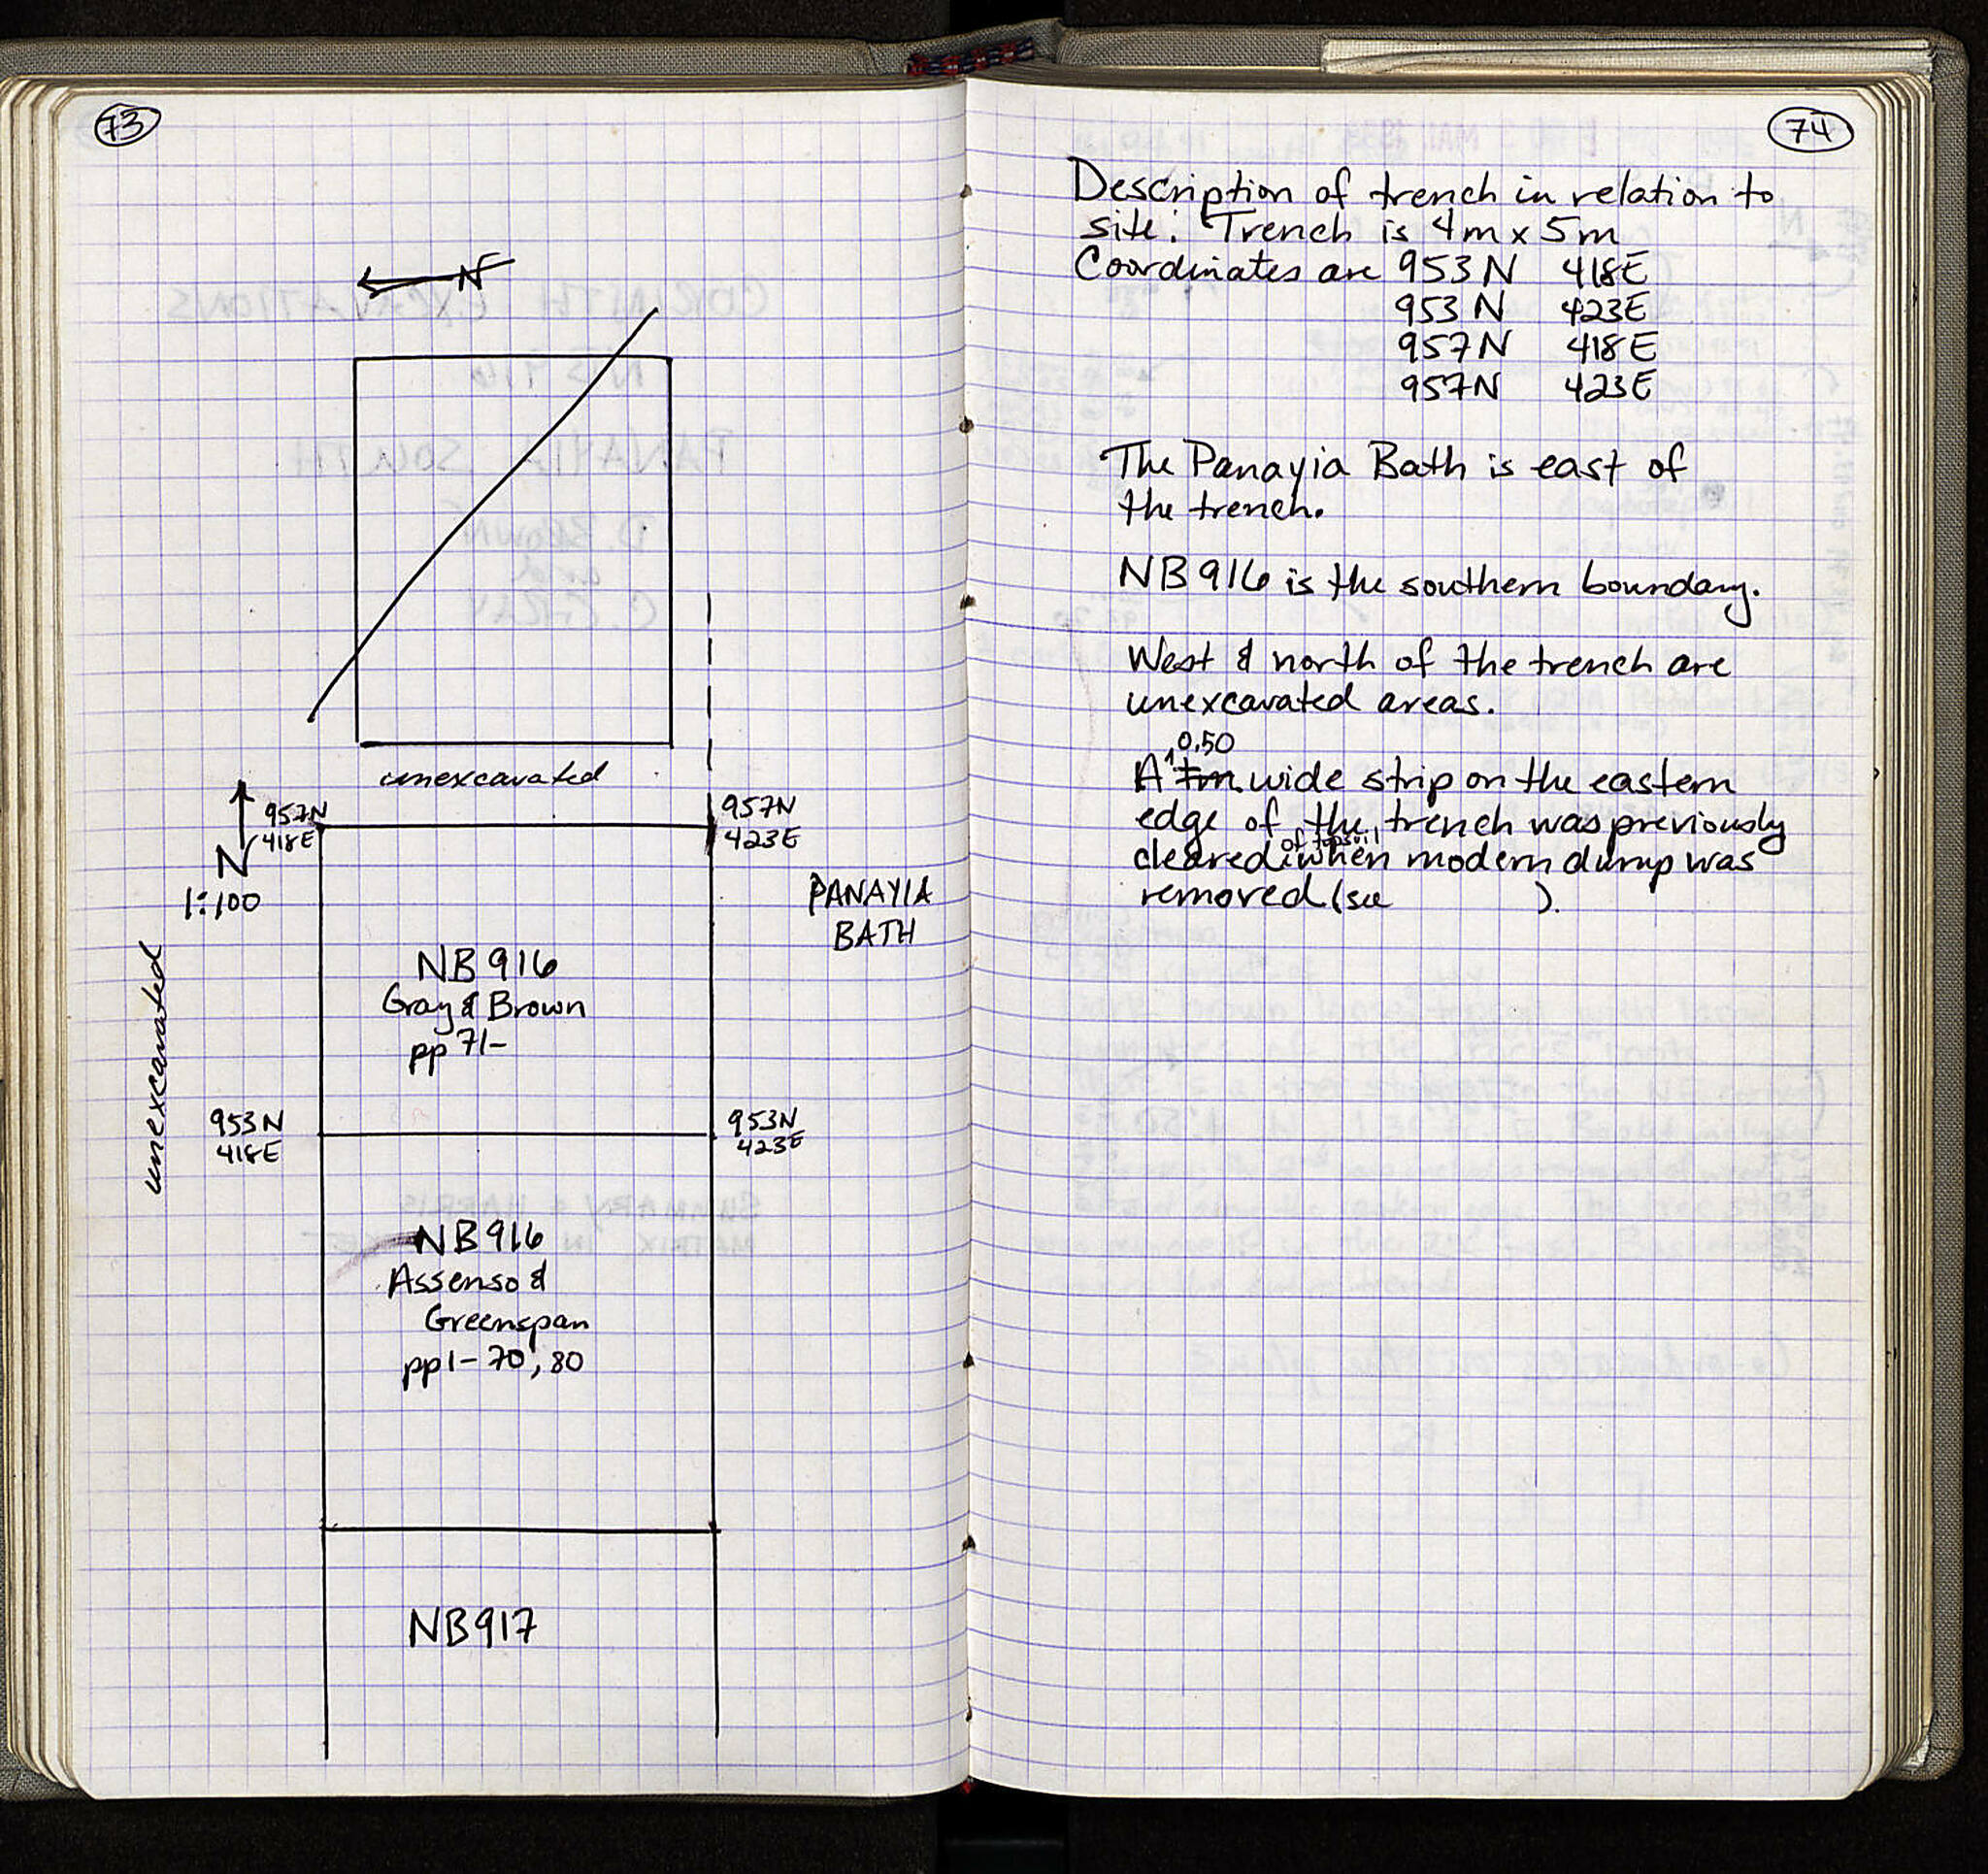 73
N
unexcavated
957N
418E
957N
423E
N
1:100
PANAYIA
BATH
unexcavated
NB 916
Gray & Brown
pp 71-
953N
418E
953N
423E
NB 916
Assenso &
Greenspan
pp 1-70, 80
NB 917
74
Description of trench in relation to
site: Trench is 4m x 5m
Coordinates are 953 N 418E
953 N 423E
957N 418E
957N 423E
The Panayia Bath is east of
the trench.
NB 916 is the southern boundary.
West & north of the trench are
unexcavated areas.
0.50
A 1m wide strip on the eastern
edge of the trench was previously
of topsoil
cleared when modern dump was
removed (see ).